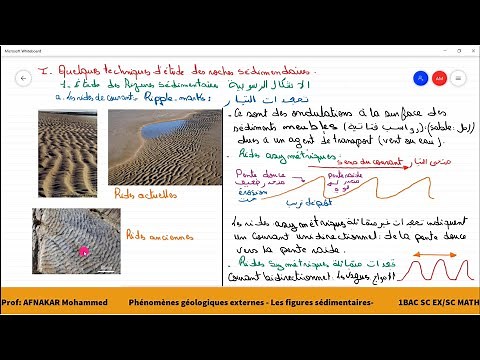 Microsoft Whiteboard
I. Quelques techniques d'étude des roches sédimentaires.
1. Etude des figures sédimentaires الاشكال الرسوبية
a. Les rides de courant. Ripple-marks: تجعدات التيار
- Ce sont des ondulations à la surface des
sédiments meubles (رواسب فتاتية): (sable: رمل)
dues à un agent de transport (vent ou eau).
- Rides asymétriques: sens du courant منحى التيار
Pente douce
Pente raide
érosion
dépôt ترسب
Rides actuelles
Rides anciennes
Les rides asymétriques تجعدات غير متماثلة indiquent
un courant unidirectionnel: de la pente douce
vers la pente raide.
- Rides symétriques تجعدات متماثلة
Courant bidirectionnel: les vagues الامواج
AM
Prof: AFNAKAR Mohammed Phénomènes géologiques externes - Les figures sédimentaires- 1BAC SC EX/SC MATH